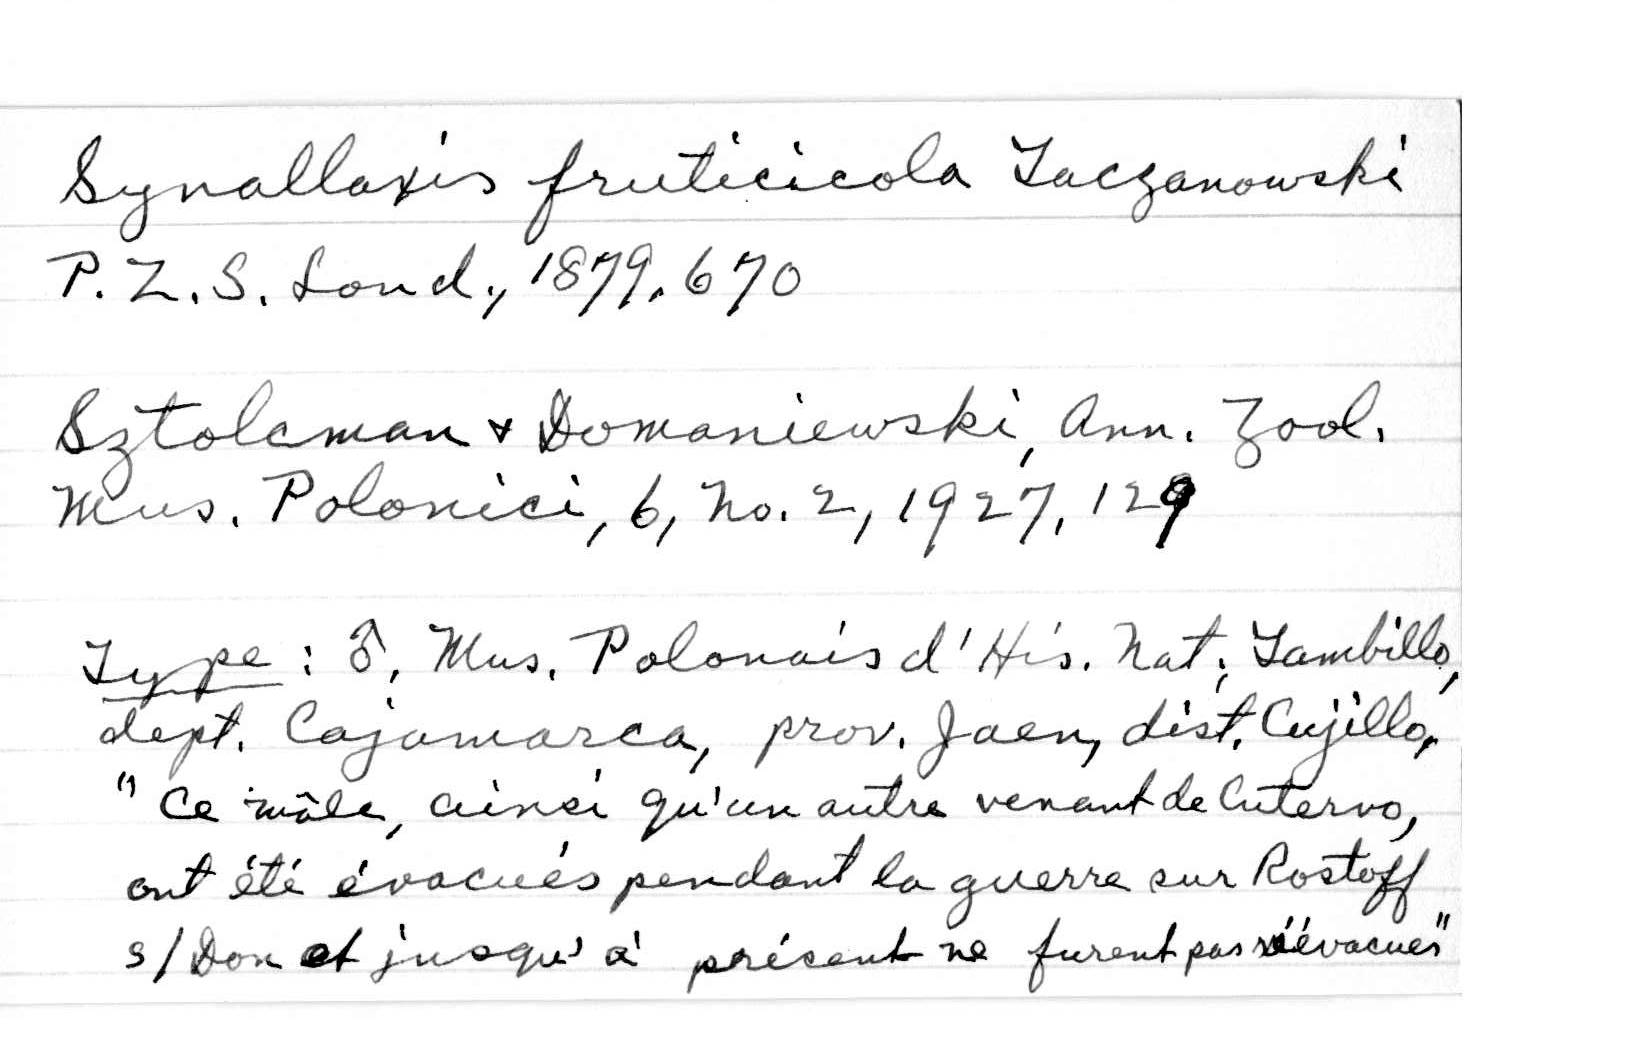 Synallaxis fruticicola Taczanowski
P. Z. S. Lond., 1879, 670
Sztolcman & Domaniewski, Ann. Zool.
Mus. Polonici, 6, No. 2, 1927, 129
Type: ♂, Mus. Polonais d'His. Nat; Tambillo,
dept. Cajamarca, prov. Jaen, dist. Cujillo,
"Ce mâle, ainsi qu'un autre venant de Cutervo,
ont été évacués pendant la guerre sur Rostoff
s/Don et jusqu'à présent ne furent pas réévacués"